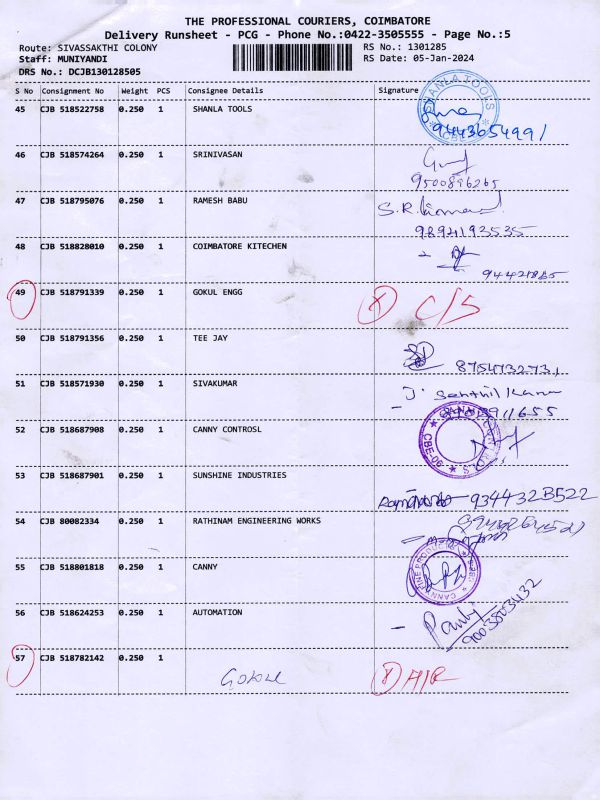 THE PROFESSIONAL COURIERS, COIMBATORE
Delivery Runsheet - PCG - Phone No.:0422-3505555 - Page No.:5
Route: SIVASSAKTHI COLONY RS No.: 1301285
Staff: MUNIYANDI RS Date: 05-Jan-2024
DRS No.: DCJB130128505
S No Consignment No Weight PCS Consignee Details Signature
45 CJB 518522758 0.250 1 SHANLA TOOLS
SHANLA TOOLS
9443654991
46 CJB 518574264 0.250 1 SRINIVASAN
9500896265
47 CJB 518795076 0.250 1 RAMESH BABU S.R.
9894193535
48 CJB 518828010 0.250 1 COIMBATORE KITECHEN
49 CJB 518791339 0.250 1 GOKUL ENGG X C/S
50 CJB 518791356 0.250 1 TEE JAY
8754732731
51 CJB 518571930 0.250 1 SIVAKUMAR
52 CJB 518687908 0.250 1 CANNY CONTROSL
CBE-06
53 CJB 518687901 0.250 1 SUNSHINE INDUSTRIES
934432B522
54 CJB 80082334 0.250 1 RATHINAM ENGINEERING WORKS
55 CJB 518801818 0.250 1 CANNY
56 CJB 518624253 0.250 1 AUTOMATION
9003503432
57 CJB 518782142 0.250 1